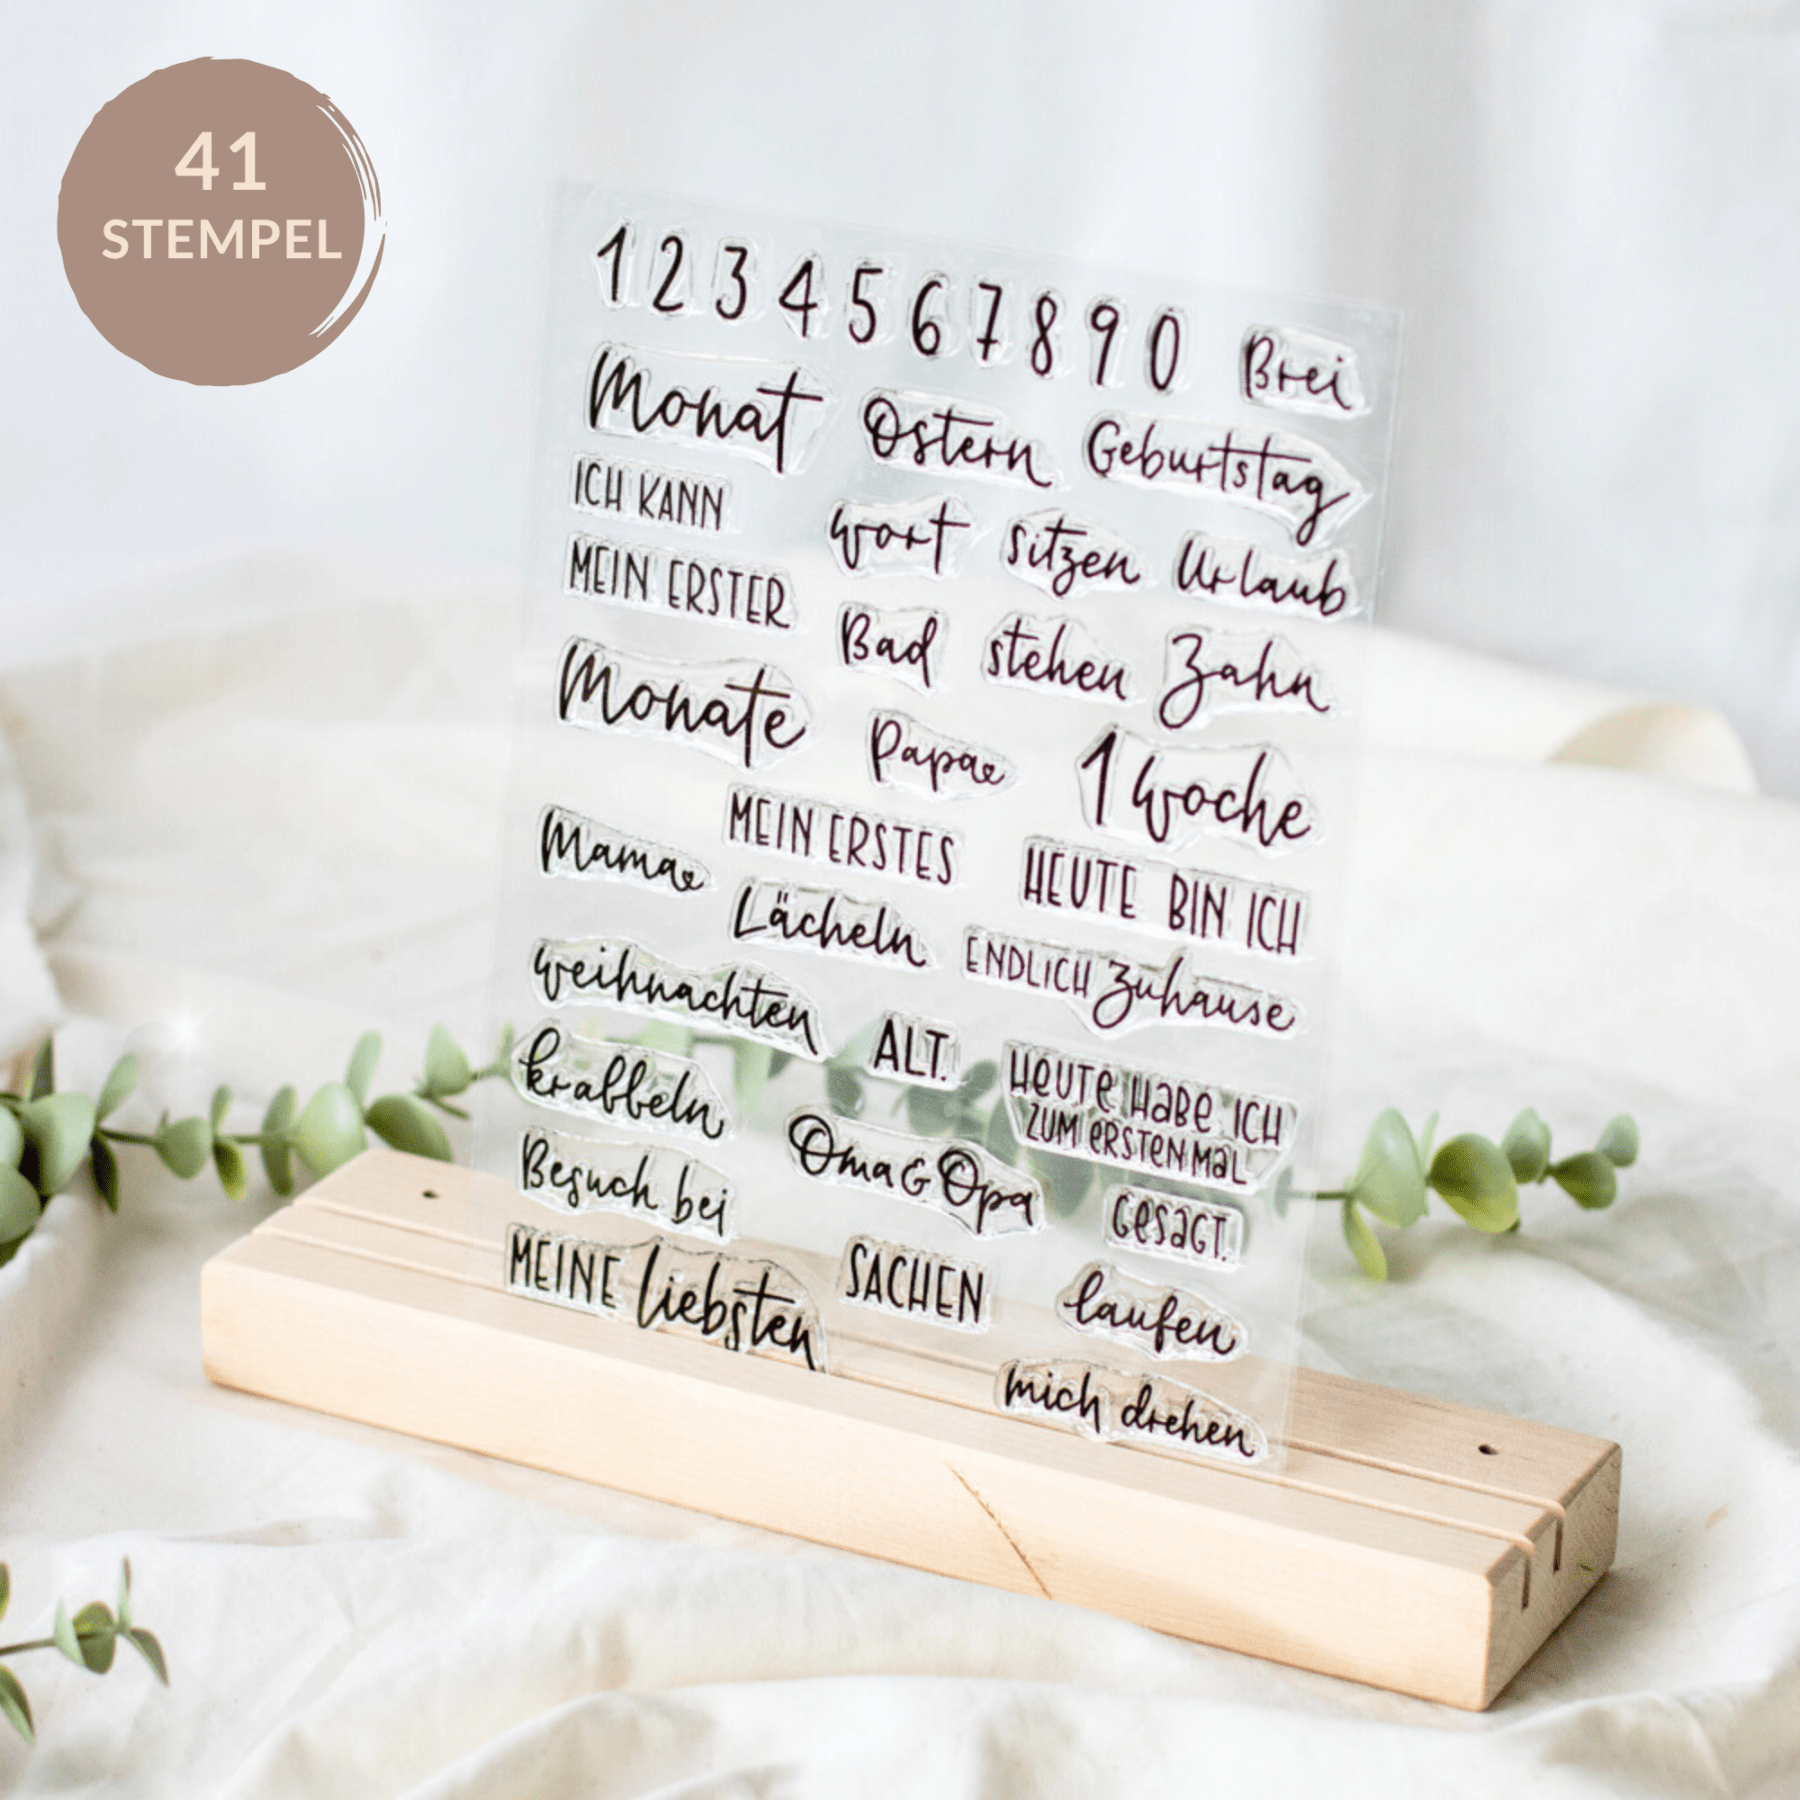 41
STEMPEL
1 2 3 4 5 6 7 8 9 0 Brei
Monat Ostern Geburtstag
ICH KANN wort sitzen Urlaub
MEIN ERSTER Bad stehen Zahn
Monate Papa 1 Woche
Mama MEIN ERSTES HEUTE BIN ICH
Lächeln ENDLICH Zuhause
Weihnachten ALT. HEUTE HABE ICH
ZUM ERSTEN MAL
krabbeln Oma & Opa GESAGT.
Besuch bei
MEINE liebsten SACHEN laufen
mich drehen